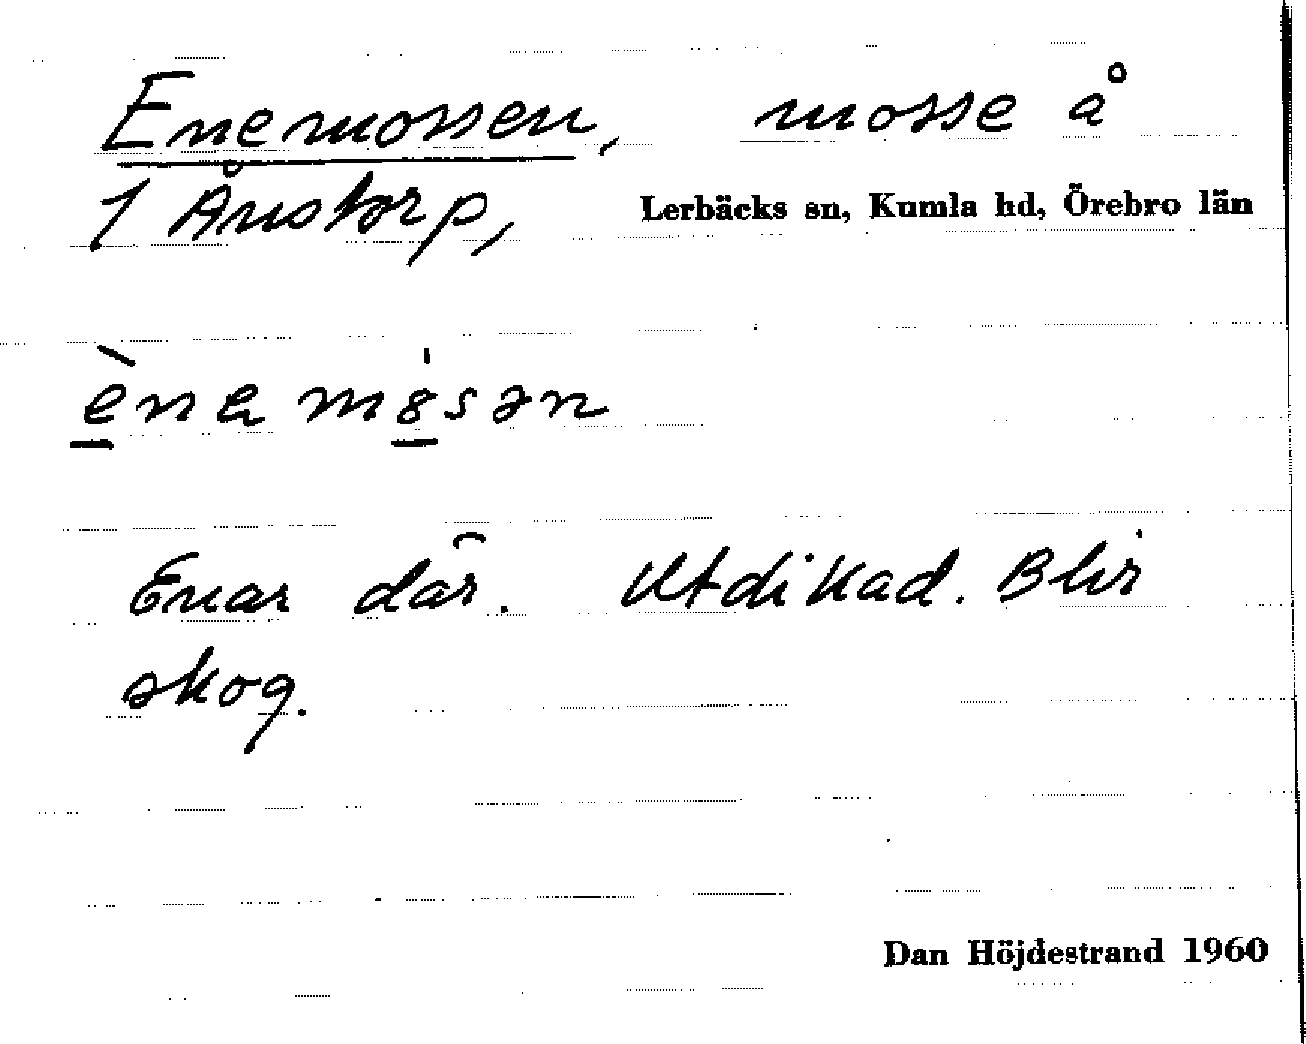 Enemossen, mosse å
1 Ånstorp, Lerbäcks sn, Kumla hd, Örebro län
Enar där. Utdikad. Blir
skog.
Dan Höjdestrand 1960